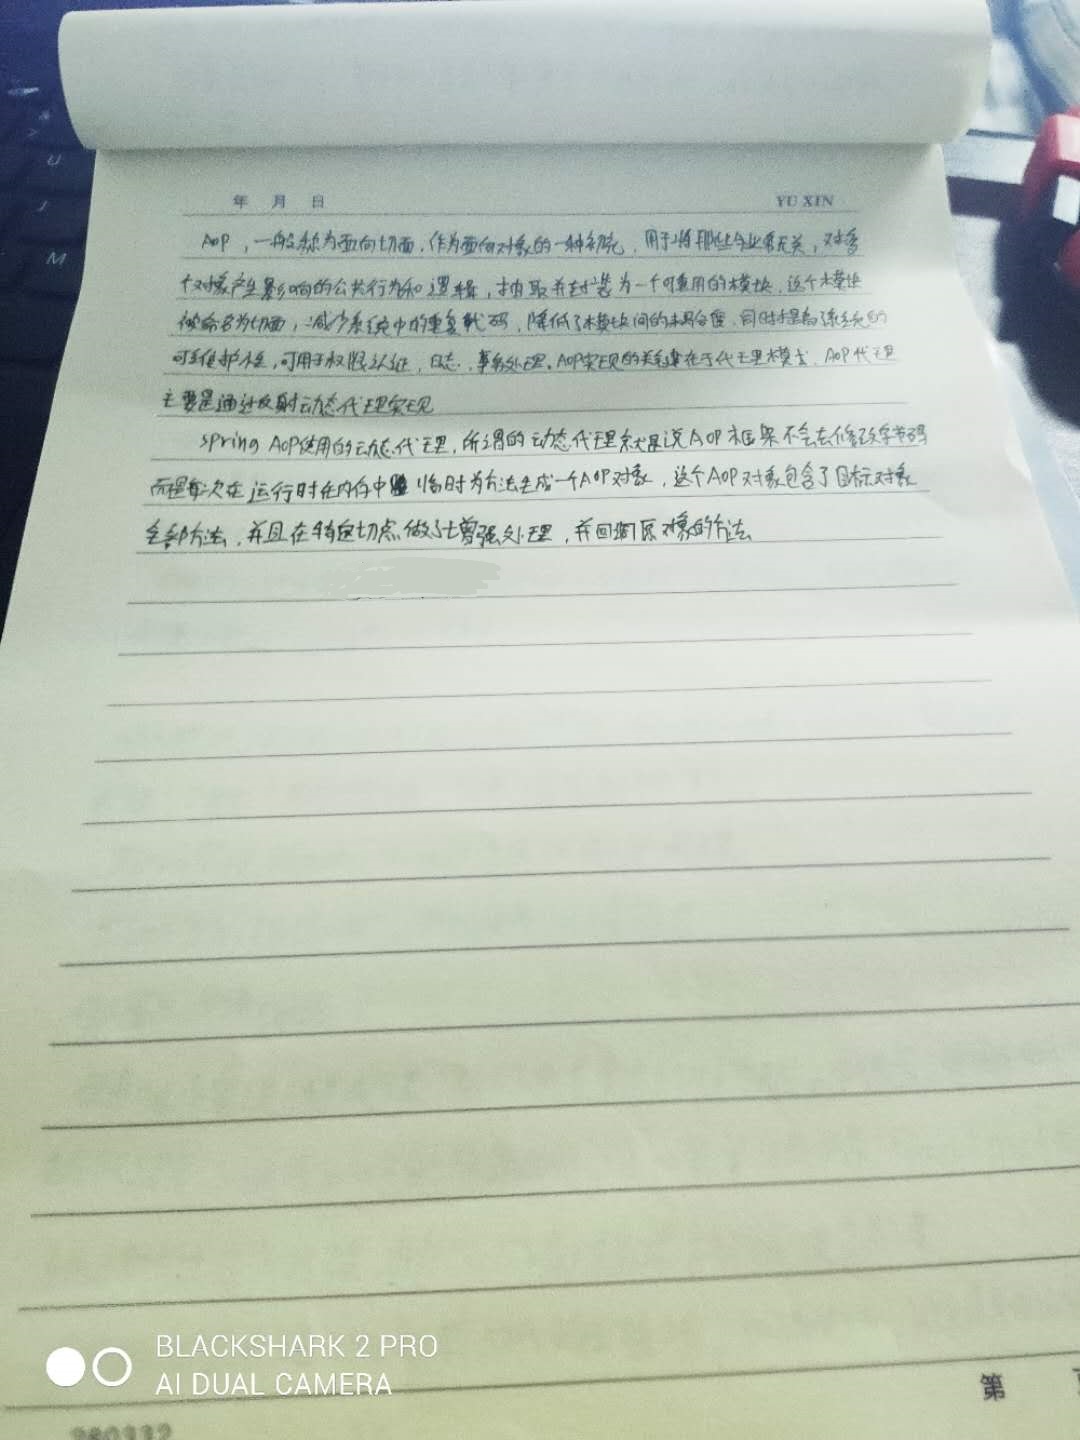 年 月 日 YU XIN
AOP，一般称为面向切面，作为面向对象的一种补充，用于将那些与业务无关，对多
个对象产生影响的公共行为和逻辑，抽取并封装为一个可重用的模块，这个模块
被命名为切面，减少系统中的重复代码，降低了模块间的耦合度，同时提高系统的
可维护性，可用于权限认证，日志，事务处理。AOP实现的关键在于代理模式，AOP代理
主要是通过反射动态代理实现
spring AOP使用的动态代理，所谓的动态代理就是说AOP框架不会去修改字节码
而是每次在运行时在内存中临时为方法生成一个AOP对象，这个AOP对象包含了目标对象
全部方法，并且在特定切点做了增强处理，并回调原对象的方法
U
J
M
BLACKSHARK 2 PRO
AI DUAL CAMERA
第